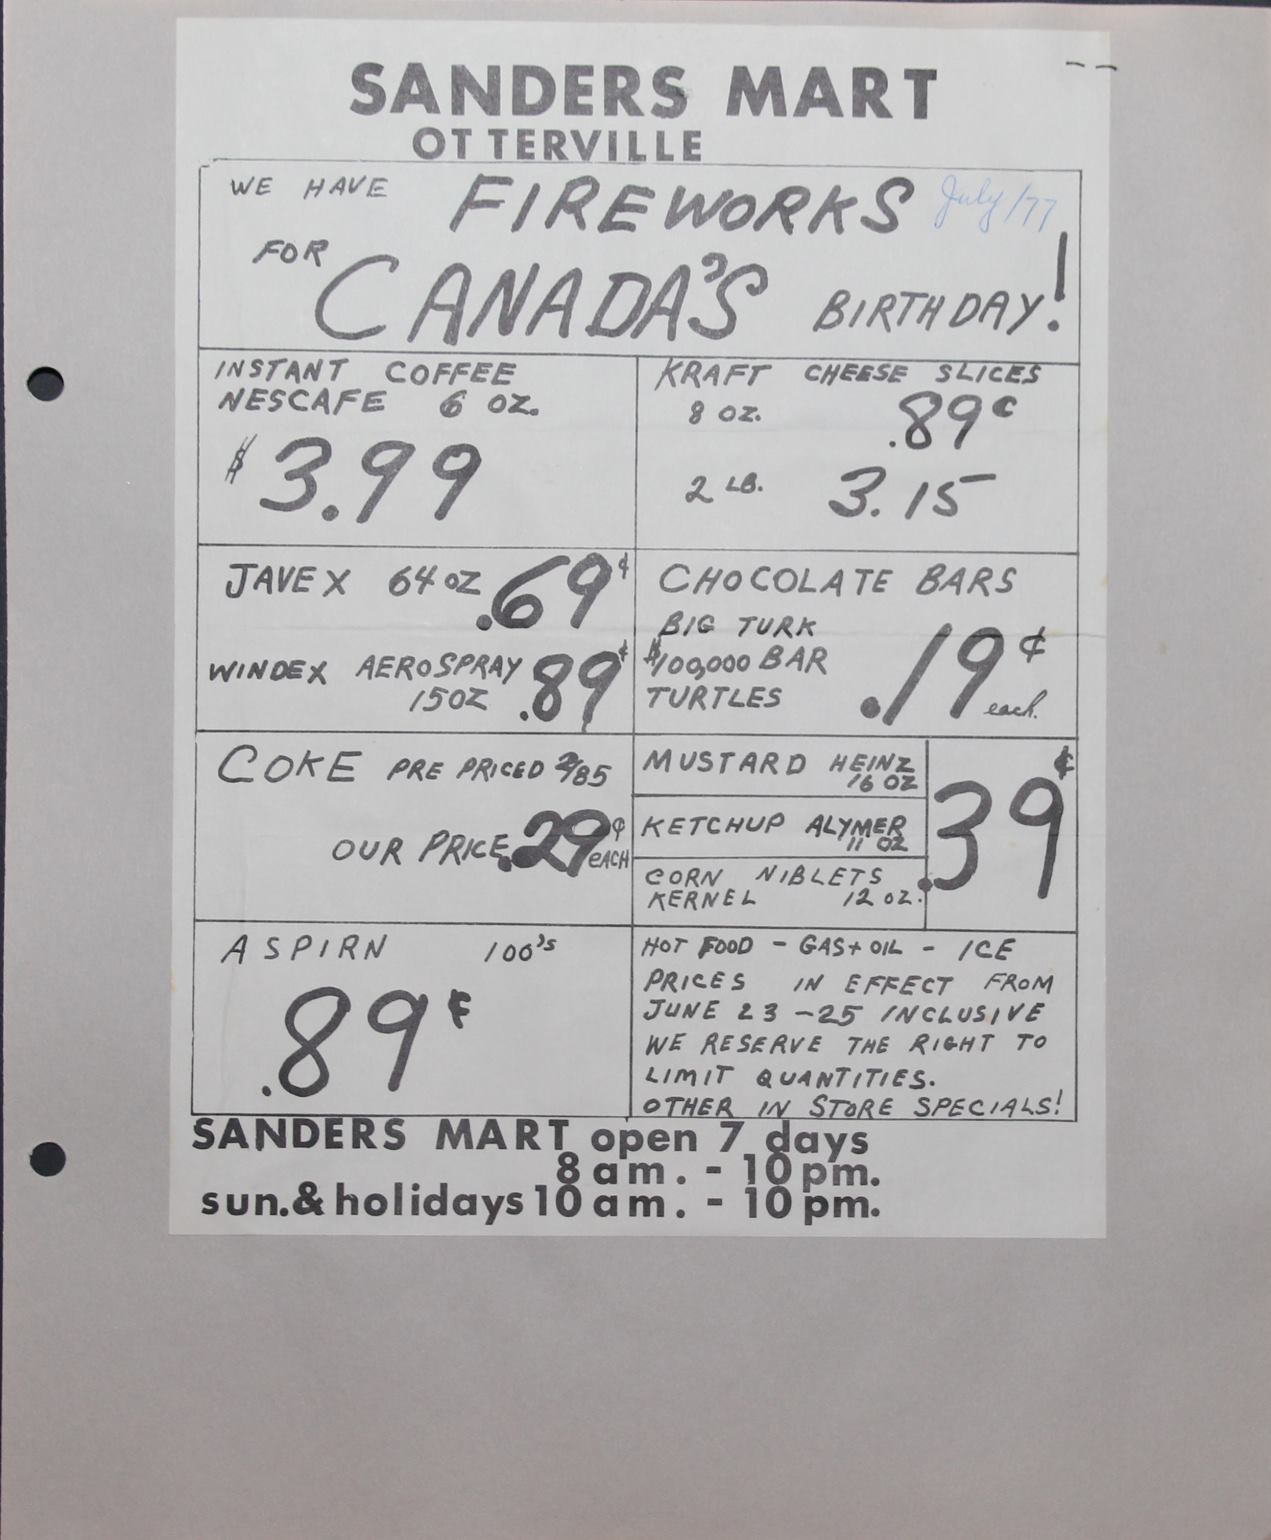 SANDERS MART
OTTERVILLE
WE HAVE FIREWORKS July/77
FOR CANADA'S BIRTHDAY!
INSTANT COFFEE
NESCAFE 6 OZ.
$3.99
KRAFT CHEESE SLICES
8 OZ. .89¢
2 LB. 3.15
JAVEX 64 OZ .69¢
WINDEX AEROSPRAY .89¢
15 OZ
CHOCOLATE BARS
BIG TURK
$100,000 BAR .19¢
TURTLES each
COKE PRE PRICED 2/85
OUR PRICE .29¢ EACH
MUSTARD HEINZ
16 OZ
KETCHUP ALYMER
11 OZ
CORN NIBLETS
KERNEL 12 OZ.
.39¢
ASPIRN 100's
.89¢
HOT FOOD - GAS + OIL - ICE
PRICES IN EFFECT FROM
JUNE 23 - 25 INCLUSIVE
WE RESERVE THE RIGHT TO
LIMIT QUANTITIES.
OTHER IN STORE SPECIALS!
SANDERS MART open 7 days
8 am. - 10 pm.
sun. & holidays 10 am. - 10 pm.